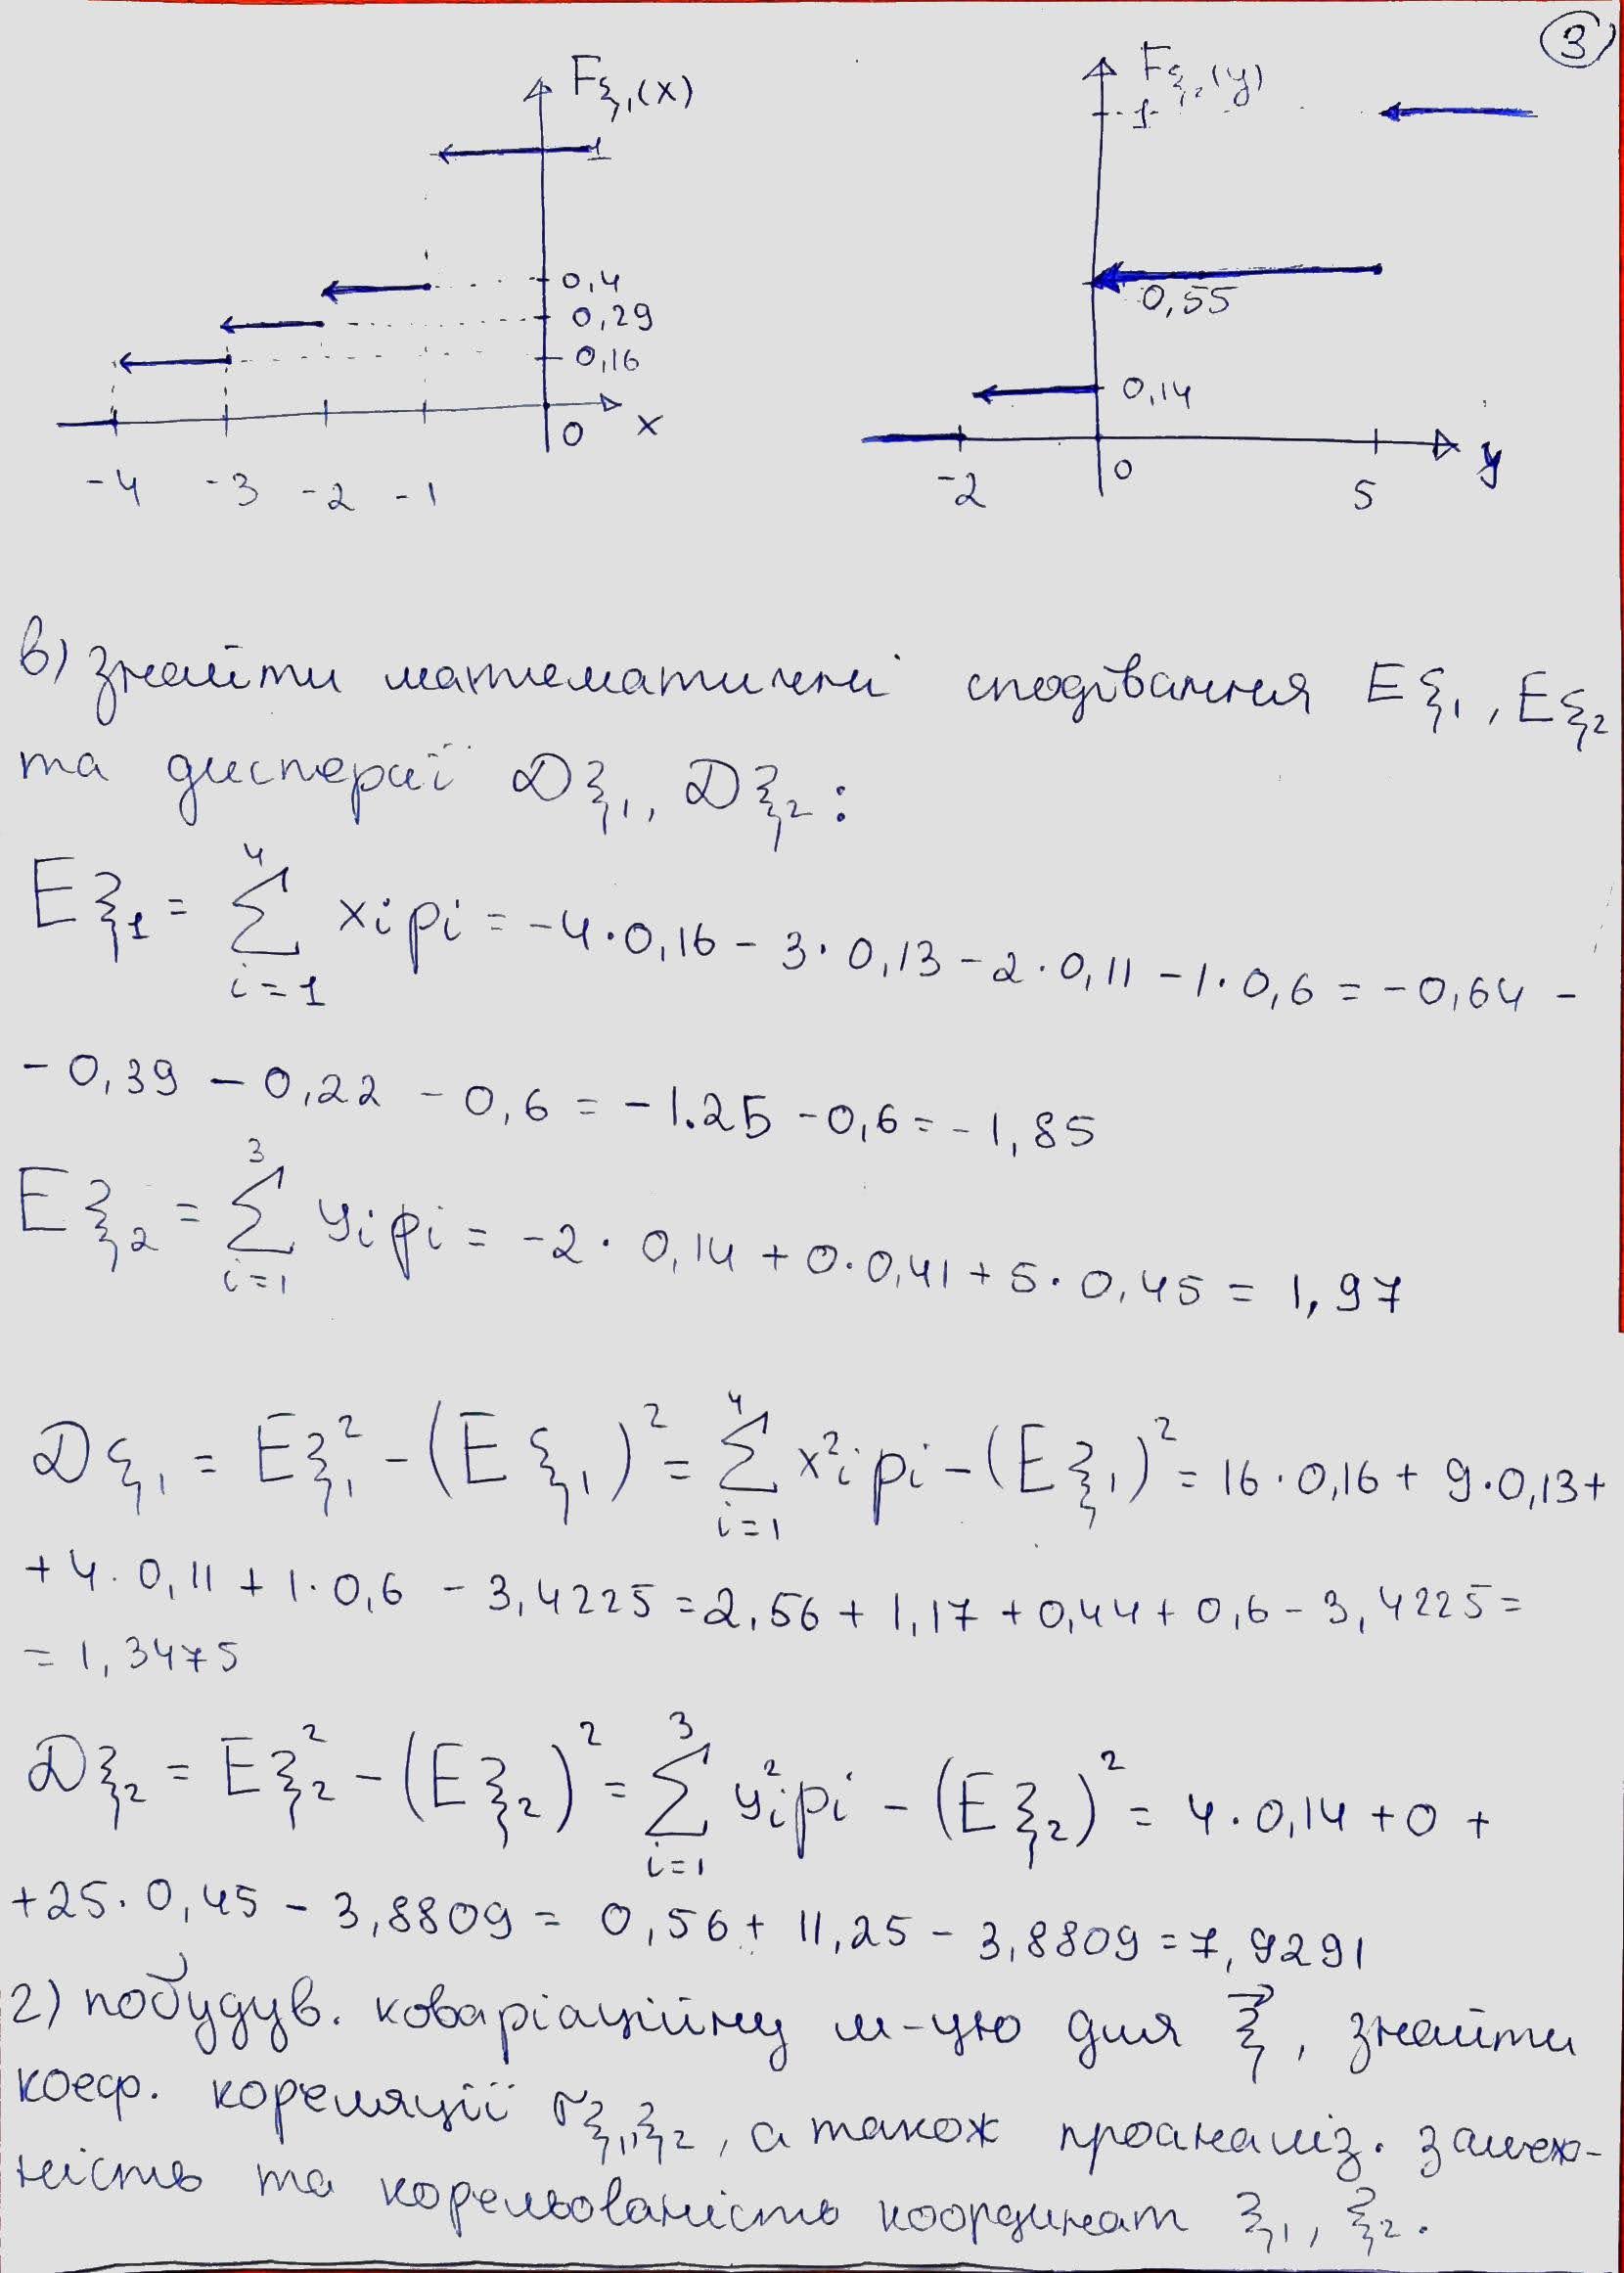 3
Fξ₁(x)
1
0,4
0,29
0,16
0 x
-4 -3 -2 -1
Fξ₂(y)
1
0,55
0,14
-2 0 5 y
в) знайти математичні сподівання Eξ₁, Eξ₂
та дисперсії Dξ₁, Dξ₂:
Eξ₁ = Σ⁴ᵢ₌₁ xᵢpᵢ = -4·0,16 - 3·0,13 - 2·0,11 - 1·0,6 = -0,64 -
- 0,39 - 0,22 - 0,6 = -1.25 - 0,6 = -1,85
Eξ₂ = Σ³ᵢ₌₁ yᵢpᵢ = -2·0,14 + 0·0,41 + 5·0,45 = 1,97
Dξ₁ = Eξ₁² - (Eξ₁)² = Σ⁴ᵢ₌₁ x²ᵢpᵢ - (Eξ₁)² = 16·0,16 + 9·0,13 +
+ 4·0,11 + 1·0,6 - 3,4225 = 2,56 + 1,17 + 0,44 + 0,6 - 3,4225 =
= 1,3475
Dξ₂ = Eξ₂² - (Eξ₂)² = Σ³ᵢ₌₁ y²ᵢpᵢ - (Eξ₂)² = 4·0,14 + 0 +
+ 25·0,45 - 3,8809 = 0,56 + 11,25 - 3,8809 = 7,9291
г) побудув. коваріаційну м-цю для ξ⃗, знайти
коеф. кореляції rξ₁,ξ₂, а також проаналіз. залеж-
ність та корельованість координат ξ₁, ξ₂.